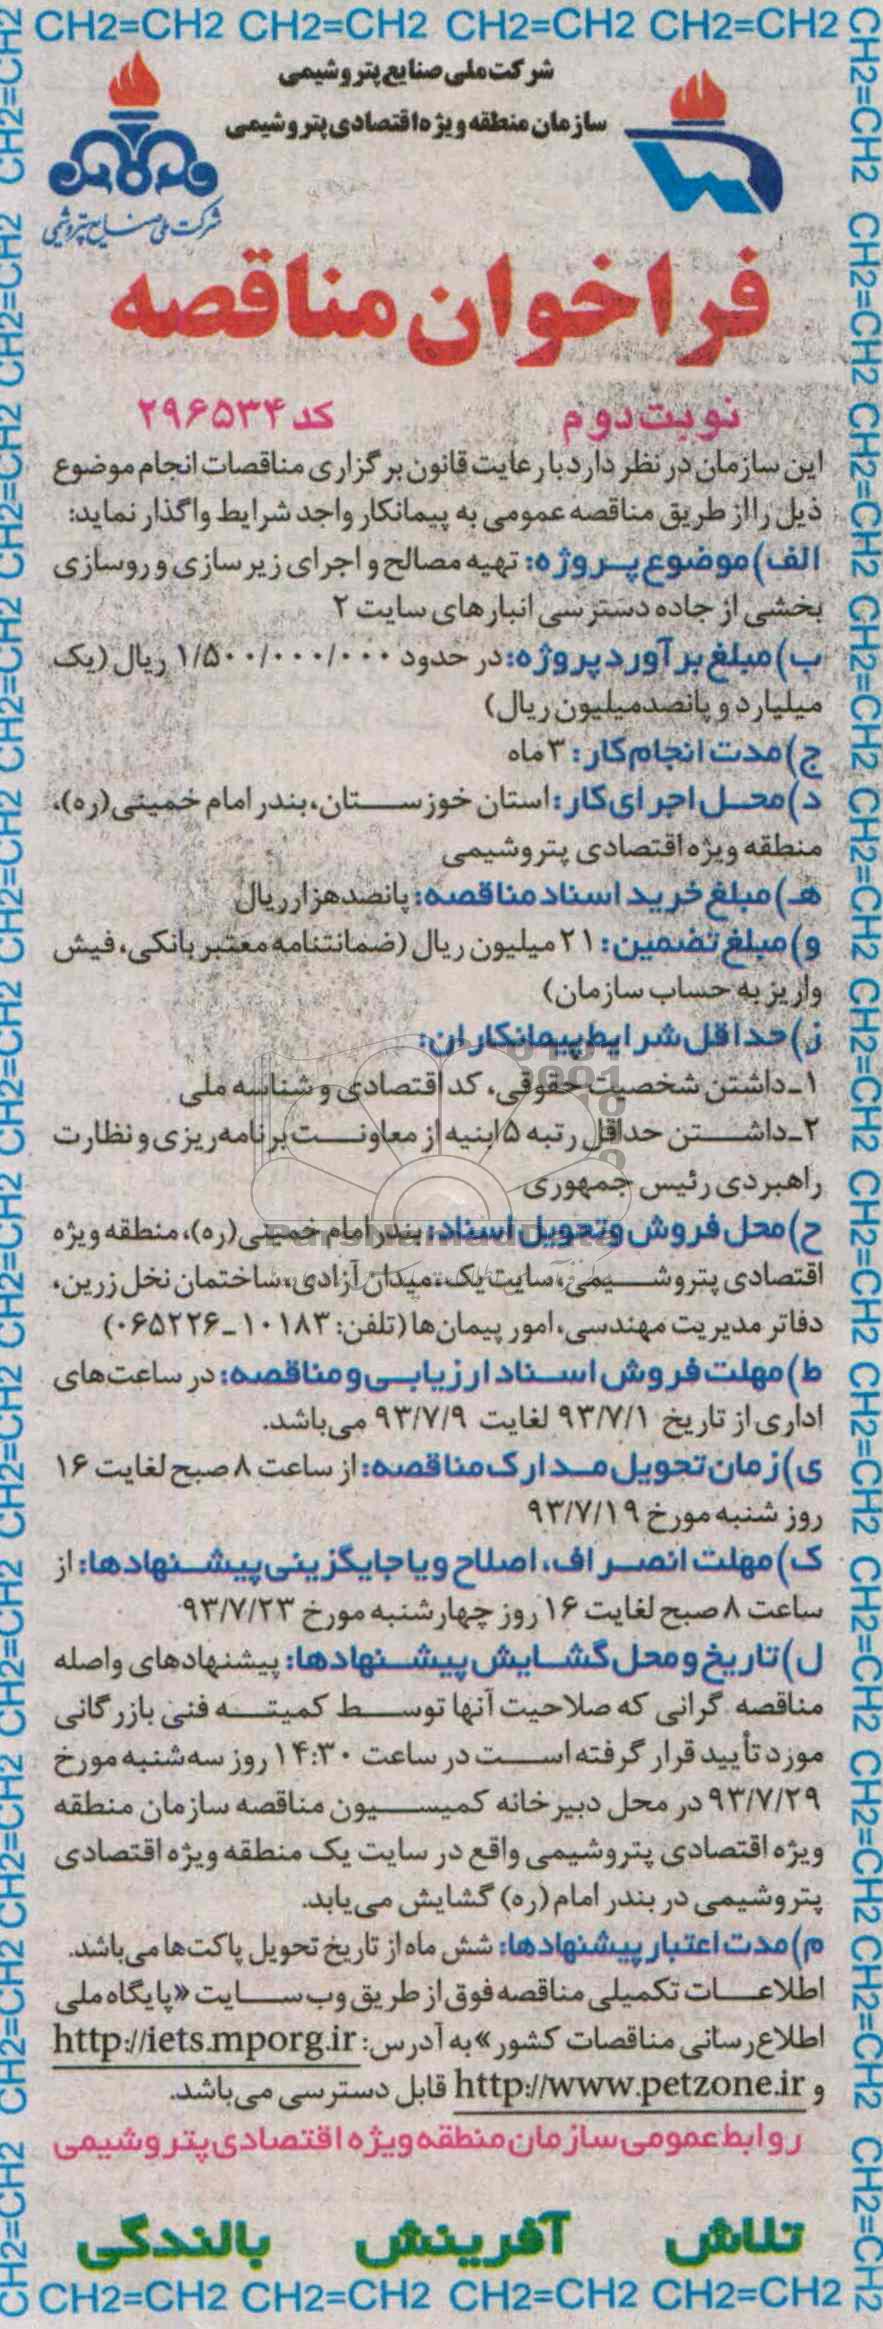 CH2=CH2 CH2=CH2 CH2=CH2 CH2=CH2
شرکت ملی صنایع پتروشیمی
سازمان منطقه ویژه اقتصادی پتروشیمی
شرکت ملی صنایع پتروشیمی
فراخوان مناقصه
نوبت دوم
کد ۲۹۶۵۳۴
این سازمان در نظر دارد با رعایت قانون برگزاری مناقصات انجام موضوع
ذیل را از طریق مناقصه عمومی به پیمانکار واجد شرایط واگذار نماید:
الف) موضوع پروژه: تهیه مصالح و اجرای زیرسازی و روسازی
بخشی از جاده دسترسی انبارهای سایت ۲
ب) مبلغ برآورد پروژه: در حدود ۱/۵۰۰/۰۰۰/۰۰۰ ریال (یک
میلیارد و پانصد میلیون ریال)
ج) مدت انجام کار: ۳ ماه
د) محل اجرای کار: استان خوزستان، بندر امام خمینی(ره)،
منطقه ویژه اقتصادی پتروشیمی
هـ) مبلغ خرید اسناد مناقصه: پانصد هزار ریال
و) مبلغ تضمین: ۲۱ میلیون ریال (ضمانتنامه معتبر بانکی، فیش
واریز به حساب سازمان)
ز) حداقل شرایط پیمانکاران:
۱ـ داشتن شخصیت حقوقی، کد اقتصادی و شناسه ملی
۲ـ داشتن حداقل رتبه ۵ ابنیه از معاونت برنامه‌ریزی و نظارت
راهبردی رئیس جمهوری
ح) محل فروش و تحویل اسناد: بندر امام خمینی(ره)، منطقه ویژه
اقتصادی پتروشیمی، سایت یک، میدان آزادی، ساختمان نخل زرین،
دفاتر مدیریت مهندسی، امور پیمان‌ها (تلفن: ۱۰۱۸۳ـ۰۶۵۲۲۶)
ط) مهلت فروش اسناد ارزیابی و مناقصه: در ساعت‌های
اداری از تاریخ ۹۳/۷/۱ لغایت ۹۳/۷/۹ می‌باشد.
ی) زمان تحویل مدارک مناقصه: از ساعت ۸ صبح لغایت ۱۶
روز شنبه مورخ ۹۳/۷/۱۹
ک) مهلت انصراف، اصلاح و یا جایگزینی پیشنهادها: از
ساعت ۸ صبح لغایت ۱۶ روز چهارشنبه مورخ ۹۳/۷/۲۳
ل) تاریخ و محل گشایش پیشنهادها: پیشنهادهای واصله
مناقصه گرانی که صلاحیت آنها توسط کمیته فنی بازرگانی
مورد تأیید قرار گرفته است در ساعت ۱۴:۳۰ روز سه‌شنبه مورخ
۹۳/۷/۲۹ در محل دبیرخانه کمیسیون مناقصه سازمان منطقه
ویژه اقتصادی پتروشیمی واقع در سایت یک منطقه ویژه اقتصادی
پتروشیمی در بندر امام (ره) گشایش می‌یابد.
م) مدت اعتبار پیشنهادها: شش ماه از تاریخ تحویل پاکت‌ها می‌باشد.
اطلاعات تکمیلی مناقصه فوق از طریق وب سایت «پایگاه ملی
اطلاع‌رسانی مناقصات کشور» به آدرس: http://iets.mporg.ir
و http://www.petzone.ir قابل دسترسی می‌باشد.
روابط عمومی سازمان منطقه ویژه اقتصادی پتروشیمی
تلاش آفرینش بالندگی
CH2=CH2 CH2=CH2 CH2=CH2 CH2=CH2
ParsNamadData